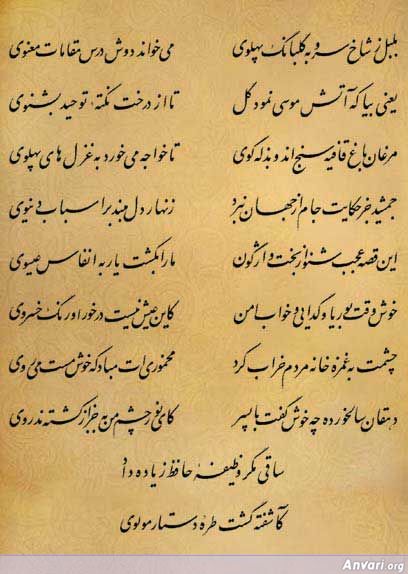 بلبل ز شاخ سرو به گلبانگ پهلوی می‌خواند دوش درس مقامات معنوی
یعنی بیا که آتش موسی نمود گل تا از درخت نکتهٔ توحید بشنوی
مرغان باغ قافیه سنجند و بذله گوی تا خواجه می خورد به غزل های پهلوی
جمشید جز حکایت جام از جهان نبرد زنهار دل مبند بر اسباب دنیوی
این قصه عجب شنو از بخت واژگون ما را بکشت یار به انفاس عیسوی
خوش وقت بوریا و گدایی و خواب امن کاین عیش نیست در خور اورنگ خسروی
چشمت به غمزه خانه مردم خراب کرد مخموریت مباد که خوش مست می روی
دهقان سالخورده چه خوش گفت با پسر کای نور چشم من به جز از کشته ندروی
ساقی مگر وظیفهٔ حافظ زیاده داد
کآشفته گشت طرهٔ دستار مولوی
Anvari.org